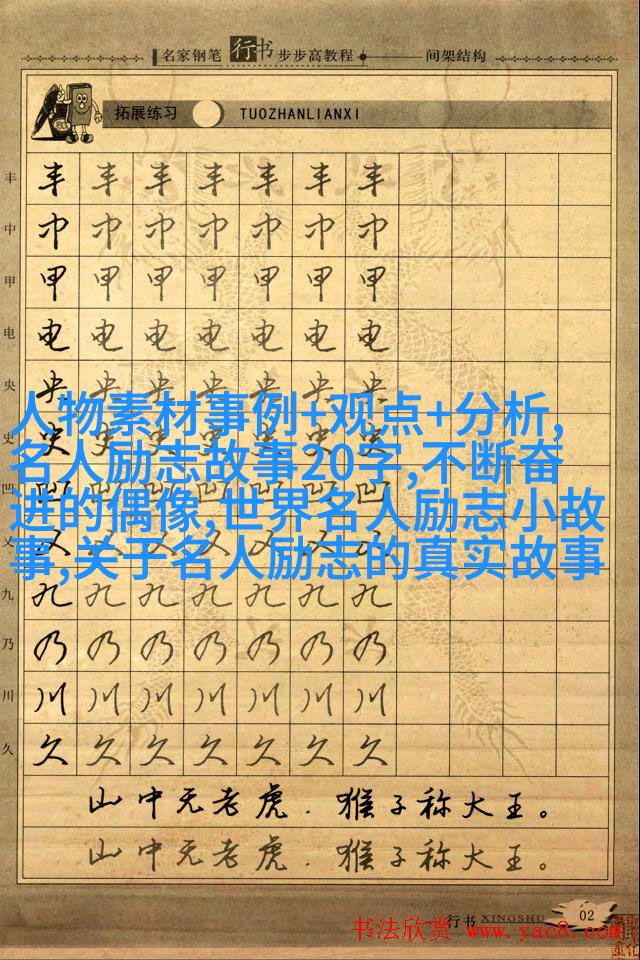 名家钢笔行书步步高教程 间架结构
拓展练习 TUOZHANLIANXI
丰 丰 丰 丰 丰 丰 丰 丰
中 中 中 中 中 中 中 中
甲 甲 甲 甲 甲 甲 甲 甲
电 电 电 电 电 电 电 电
央 央 央 央 央 央 央 央
人物素材事例+观点+分析,
史 史 史 史 史 史 史 史
名人励志故事20字,不断奋
凹 凹 凹 凹 凹 凹 凹 凹
进的偶像,世界名人励志小故
又 又 又 又 又 又 又 又
事,关于名人励志的真实故事
九 九 九 九 九 九 九 九
乃 乃 乃 乃 乃 乃 乃 乃
川 川 川 川 川 川 川 川
久 久 久 久 久 久 久 久
山中无老虎．猴子称大王。
山中无老虎．猴子称大王。
行书 XINGSHU 02
书法欣赏 www.yac8.com